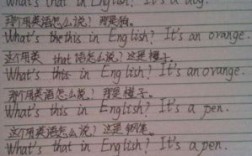 What's that in English? It's a bug.
那个用英语怎么说? 那是狗.
What's the this in English? It's an orange.
这个用英 that 语怎么说? 这是橘子.
What's this in English? It's an orange.
那个用英语怎么说? 那是橘子.
What's that in English? It's a pen.
这个用英语怎么说? 这是钢笔.
What's that in English? It's a pen.